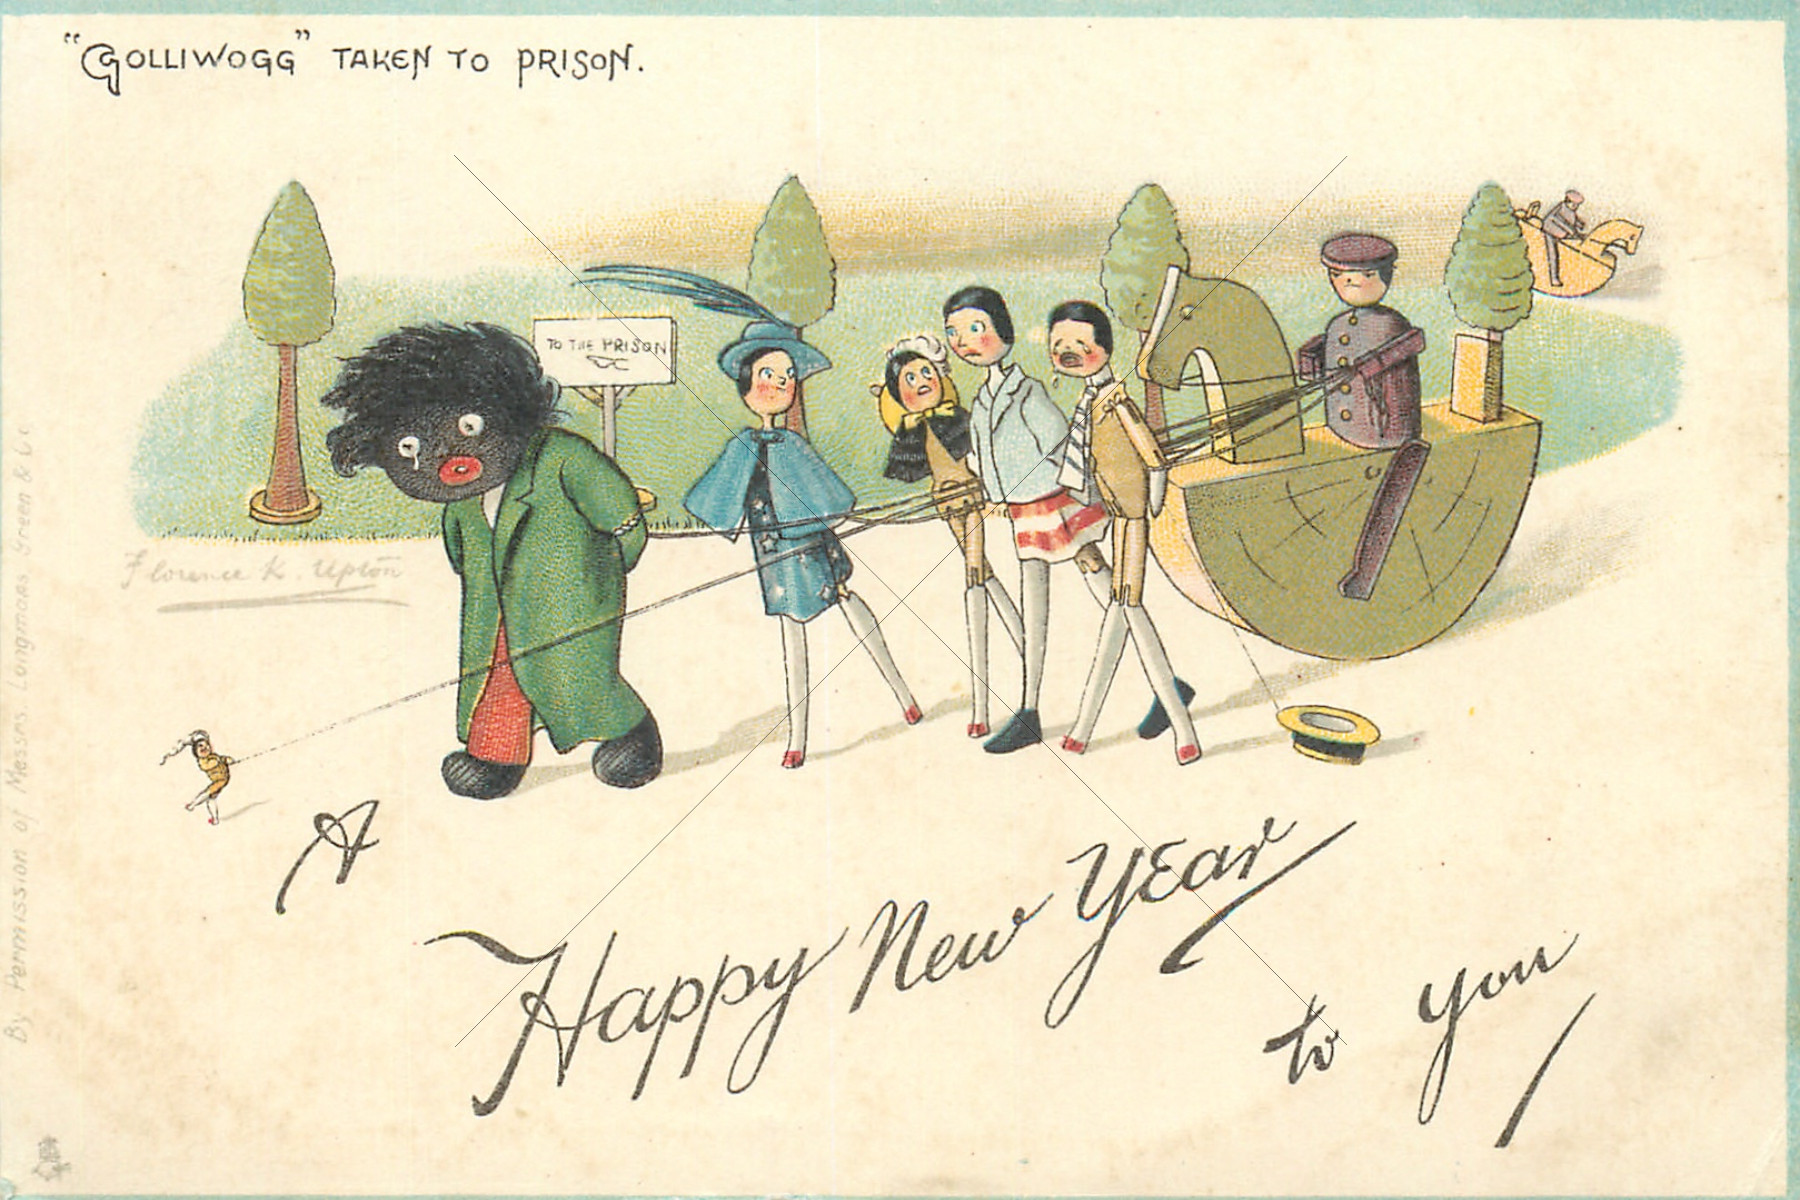 "GOLLIWOGG" TAKEN TO PRISON.
TO THE PRISON
Florence K. Upton
By Permission of Messrs. Longmans Green & Co
A
Happy New Year
to you